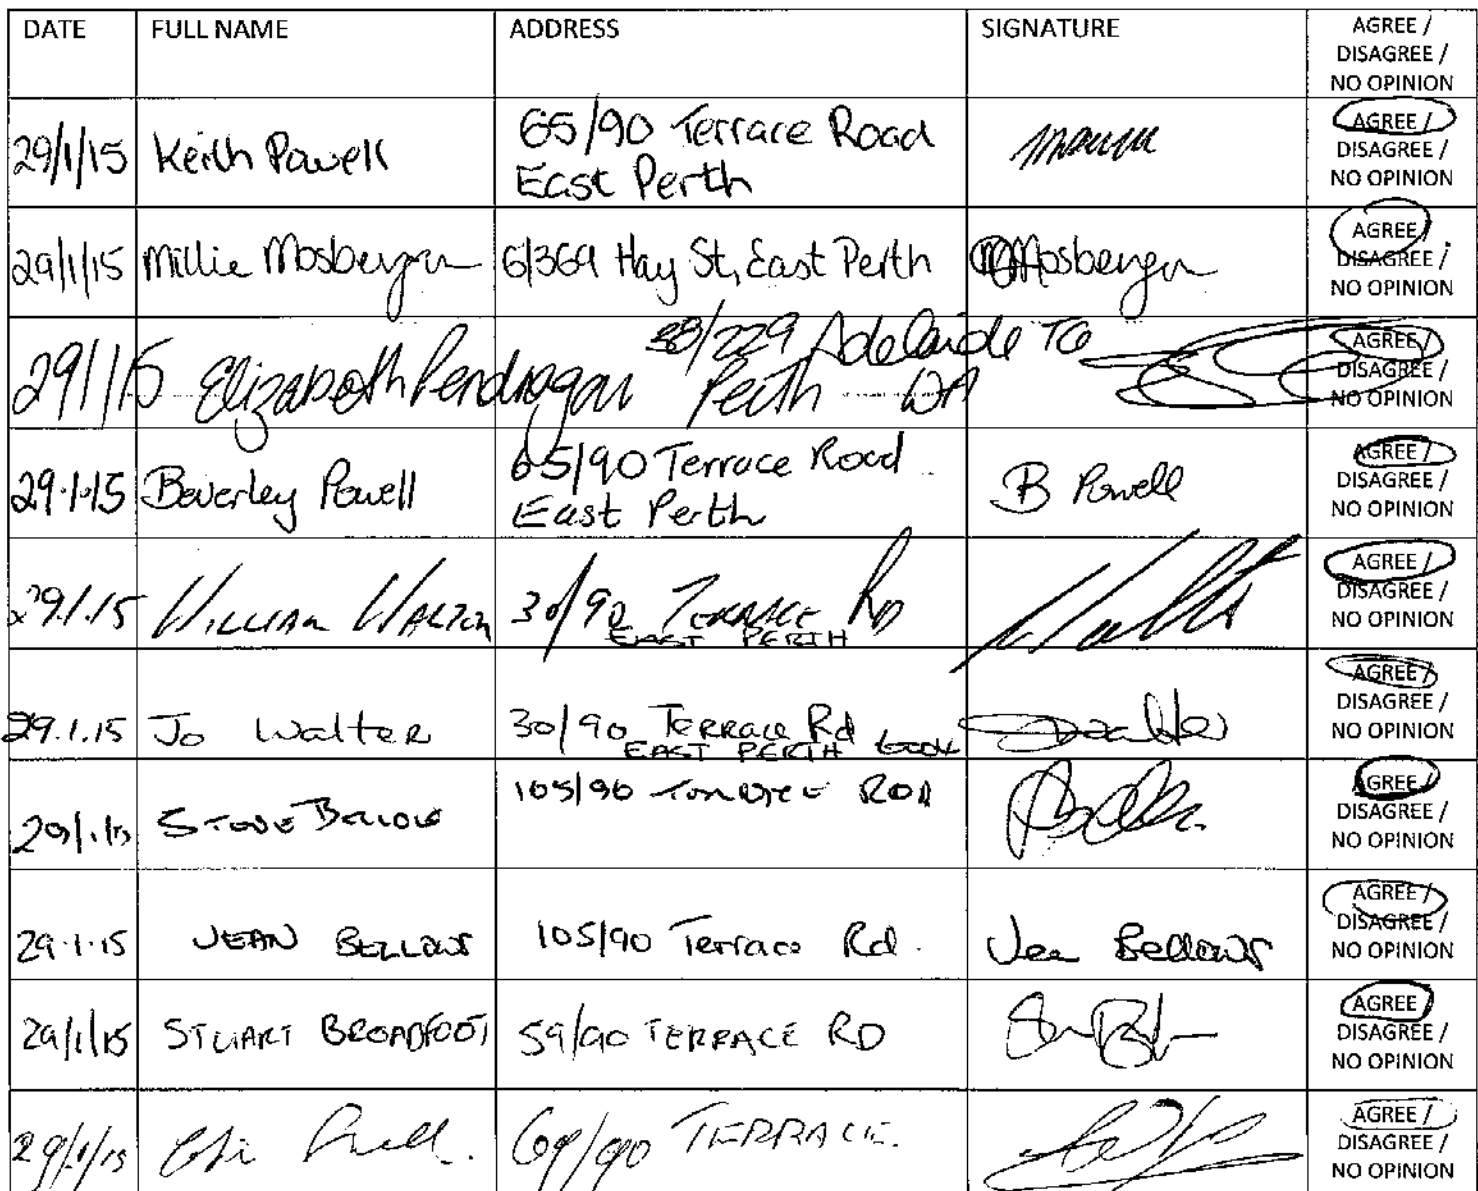 DATE FULL NAME ADDRESS SIGNATURE AGREE /
DISAGREE /
NO OPINION
29/1/15 Keith Powell 65/90 Terrace Road AGREE /
East Perth DISAGREE /
NO OPINION
29/1/15 Millie Mosbergen 6/369 Hay St, East Perth MMosbergen AGREE /
DISAGREE /
NO OPINION
29/1/15 Elizabeth Pendragon 38/229 Adelaide Tce AGREE /
Perth WA DISAGREE /
NO OPINION
29.1.15 Beverley Powell 65/90 Terrace Road B Powell AGREE /
East Perth DISAGREE /
NO OPINION
29.1.15 WILLIAM 30/90 TERRACE RD AGREE /
EAST PERTH DISAGREE /
NO OPINION
29.1.15 Jo Walter 30/90 Terrace Rd AGREE /
EAST PERTH DISAGREE /
NO OPINION
29/1/15 STEVE 105/90 AGREE /
DISAGREE /
NO OPINION
29.1.15 JEAN BELLOWS 105/90 Terrace Rd. Jean Bellows AGREE /
DISAGREE /
NO OPINION
29/1/15 STUART BROADFOOT 59/90 TERRACE RD AGREE
DISAGREE /
NO OPINION
29/1/15 69/90 TERRACE. AGREE /
DISAGREE /
NO OPINION